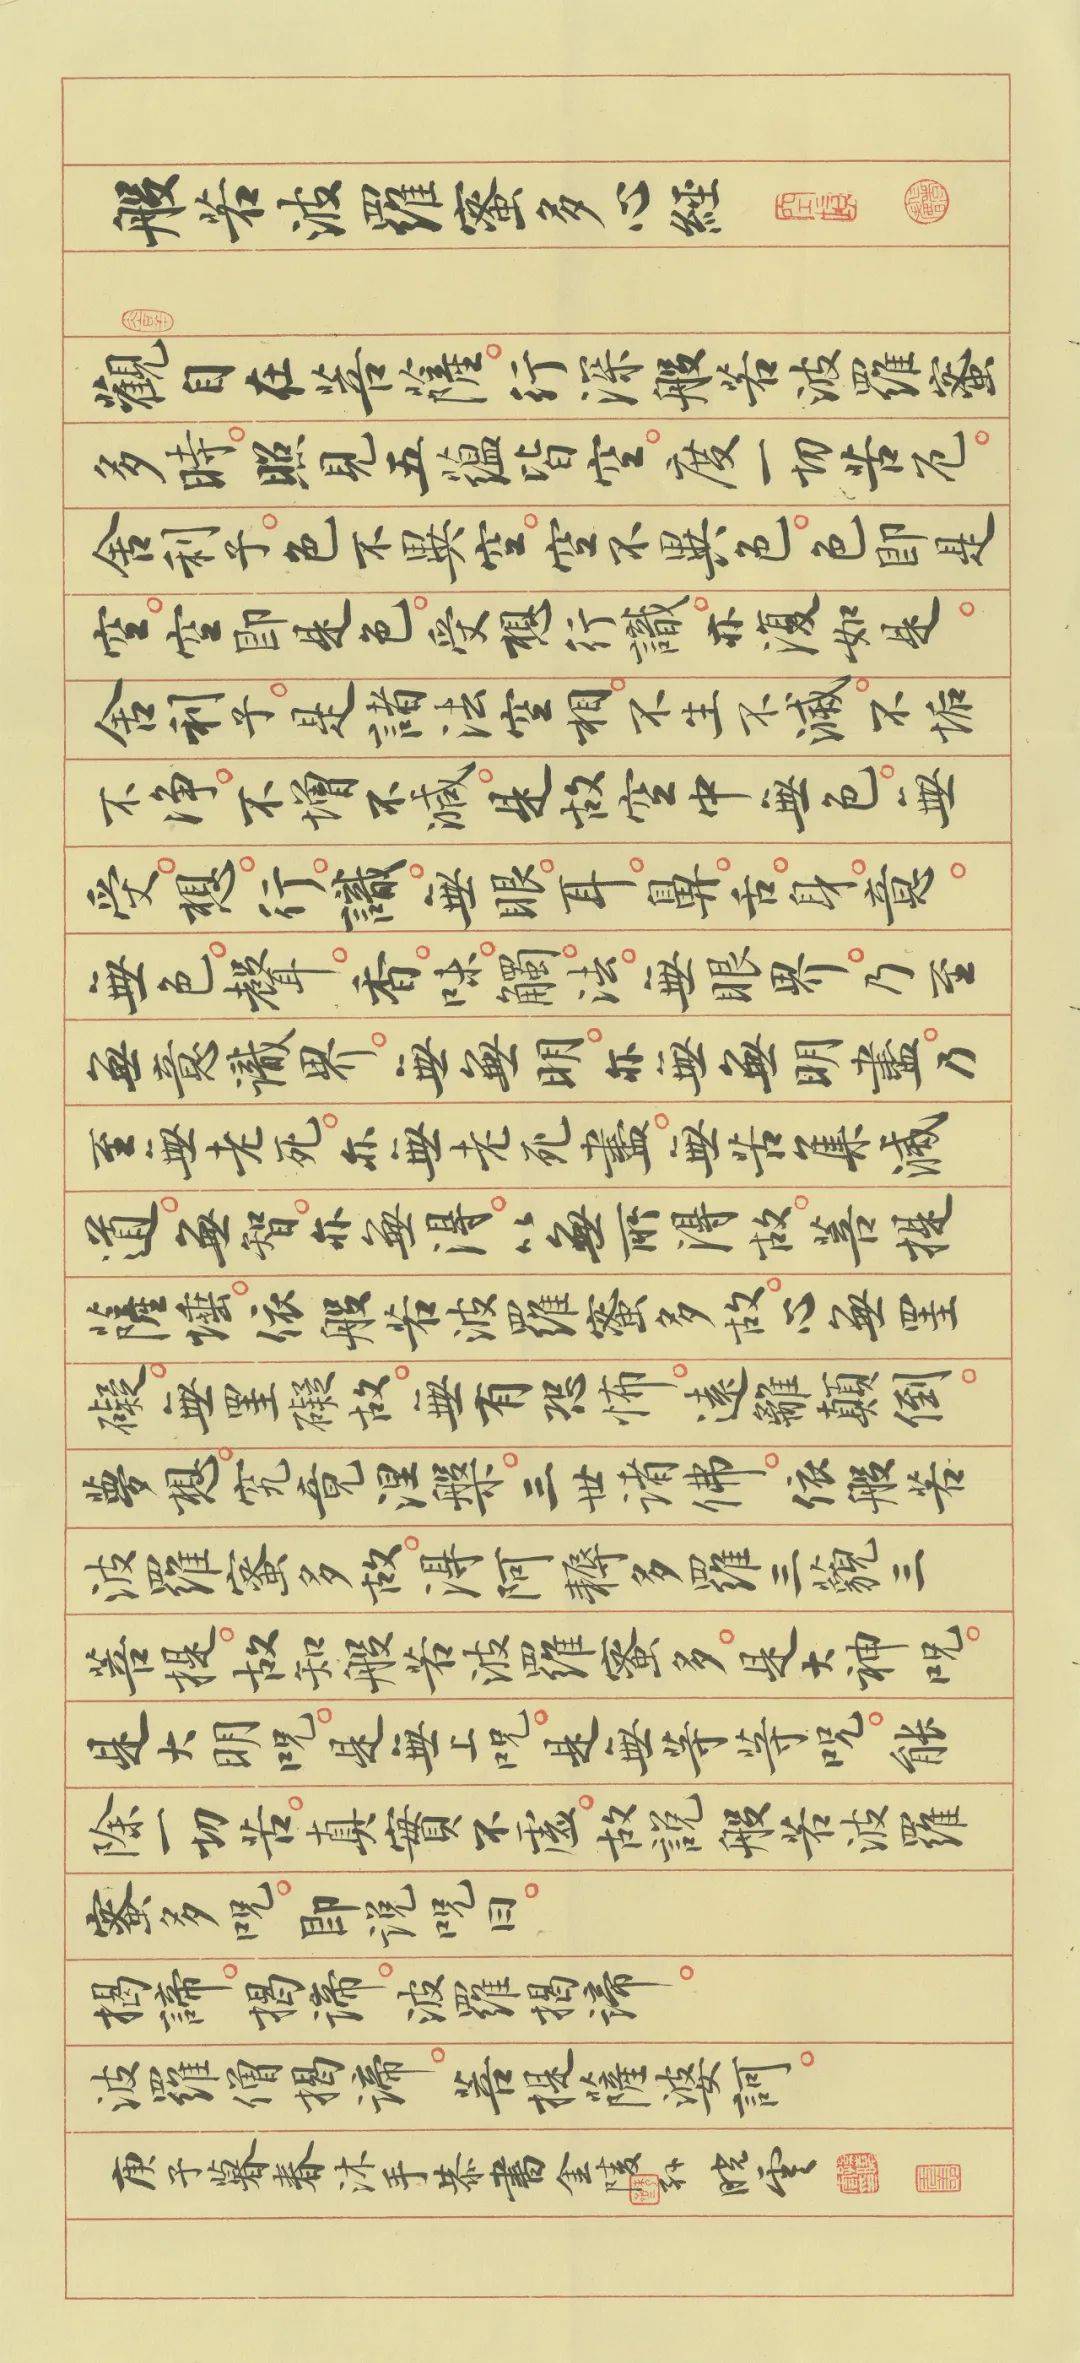 般若波羅蜜多心經
觀自在菩薩。行深般若波羅蜜
多時。照見五蘊皆空。度一切苦厄。
舍利子。色不異空。空不異色。色即是
空。空即是色。受想行識。亦復如是。
舍利子。是諸法空相。不生不滅。不垢
不净。不增不減。是故空中無色。無
受。想。行。識。無眼。耳。鼻。舌。身。意。
無色。聲。香。味。觸。法。無眼界。乃至
無意識界。無無明。亦無無明盡。乃
至無老死。亦無老死盡。無苦集滅
道。無智。亦無得。以無所得故。菩提
薩埵。依般若波羅蜜多故。心無罣
礙。無罣礙故。無有恐怖。遠離顛倒。
夢想。究竟涅槃。三世諸佛。依般若
波羅蜜多故。得阿耨多羅三藐三
菩提。故知般若波羅蜜多。是大神咒。
是大明咒。是無上咒。是無等等咒。能
除一切苦。真實不虛。故説般若波羅
蜜多咒。即説咒曰。
揭諦。揭諦。波羅揭諦。
波羅僧揭諦。菩提薩婆訶。
庚子暮春沐手恭書金陵孫曉雲